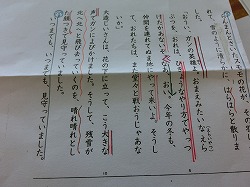 れて、雪のように清らかに、はらはらと散りま
「おうい、ガンの英雄よ。おまえみたいなえら
ぶつを、おれは、ひきょうなやり方でやっつ
けたかあないぞ。なあ、おい。今年の冬も、
仲間を連れてぬま地にやって来いよ。そうし
て、おれたちは、また堂々と戦おうじゃあな
いか。」
大造じいさんは、花の下に立って、こう大きな
声でガンによびかけました。そうして、残雪が
北へ北へと飛び去っていくのを、晴れ晴れとし
た顔つきで見守っていました。
いつまでも、いつまでも、見守っていました。